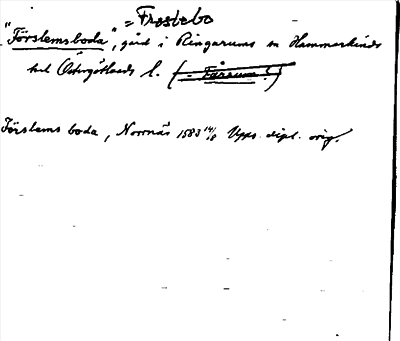 = Frostebo
"Förslemsboda", gård i Ringarums sn Hammarkinds
hd Östergötlands l. (= Fårum?)
Förslems boda, Norrnäs 1583 14/8 Upps. dipl. orig.